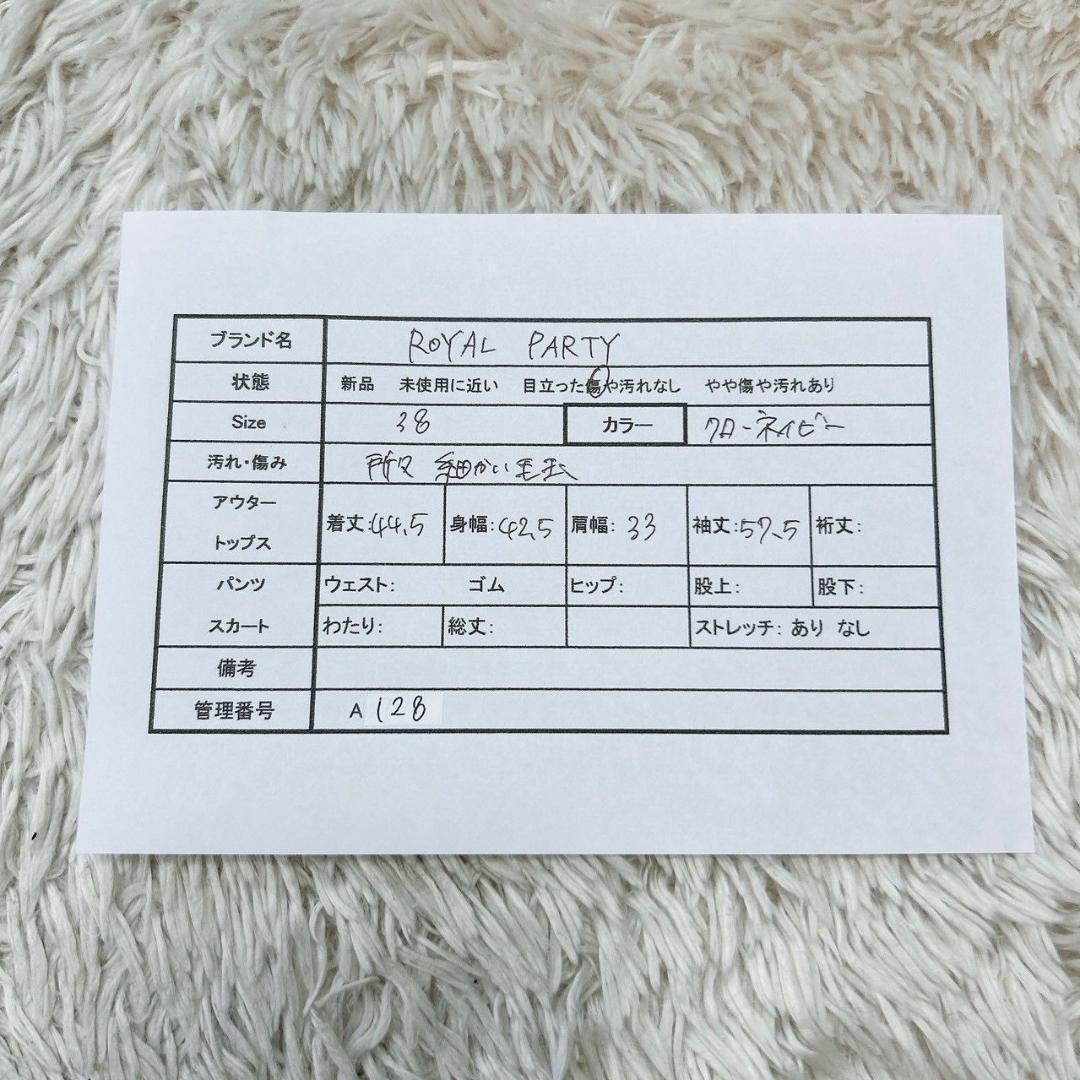 ブランド名 ROYAL PARTY
状態 新品 未使用に近い 目立った傷や汚れなし やや傷や汚れあり
Size 38 カラー クロ-ネイビー
汚れ・傷み 所々 細かい毛玉
アウター
トップス
着丈:44.5 身幅:42.5 肩幅: 33 袖丈:57.5 裄丈:
パンツ ウェスト: ゴム ヒップ: 股上: 股下:
スカート わたり: 総丈: ストレッチ: あり なし
備考
管理番号 A 128